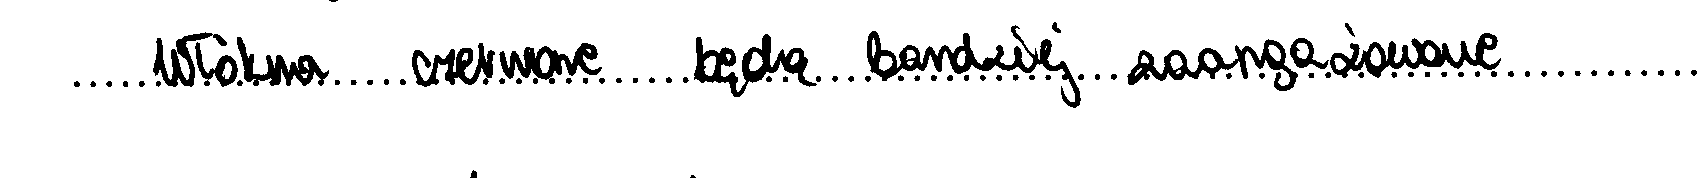 Włókna czerwone będą bardziej zaangażowane